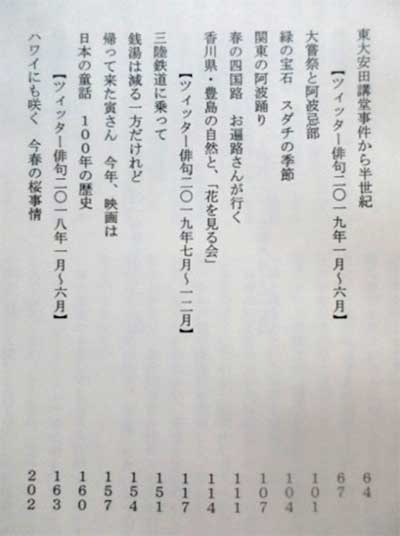 東大安田講堂事件から半世紀 64
【ツィッター俳句二〇一九年一月～六月】 67
大嘗祭と阿波忌部 101
緑の宝石　スダチの季節 104
関東の阿波踊り 107
春の四国路　お遍路さんが行く 111
香川県・豊島の自然と、「花を見る会」 114
【ツィッター俳句二〇一九年七月～一二月】 117
三陸鉄道に乗って 151
銭湯は減る一方だけれど 154
帰って来た寅さん　今年、映画は 157
日本の童話　１００年の歴史 160
【ツィッター俳句二〇一八年一月～六月】 163
ハワイにも咲く　今春の桜事情 202